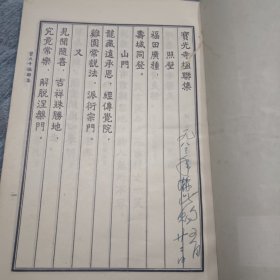 寶光寺楹聯集
照壁
福田廣種,
壽域同登。
山門
龍藏遠承恩,經傳覺院,
雞園常說法,派衍宗門。
又
見聞隨喜,吉祥殊勝地,
究竟常樂,解脫涅槃門。
寶光寺楹聯集
一